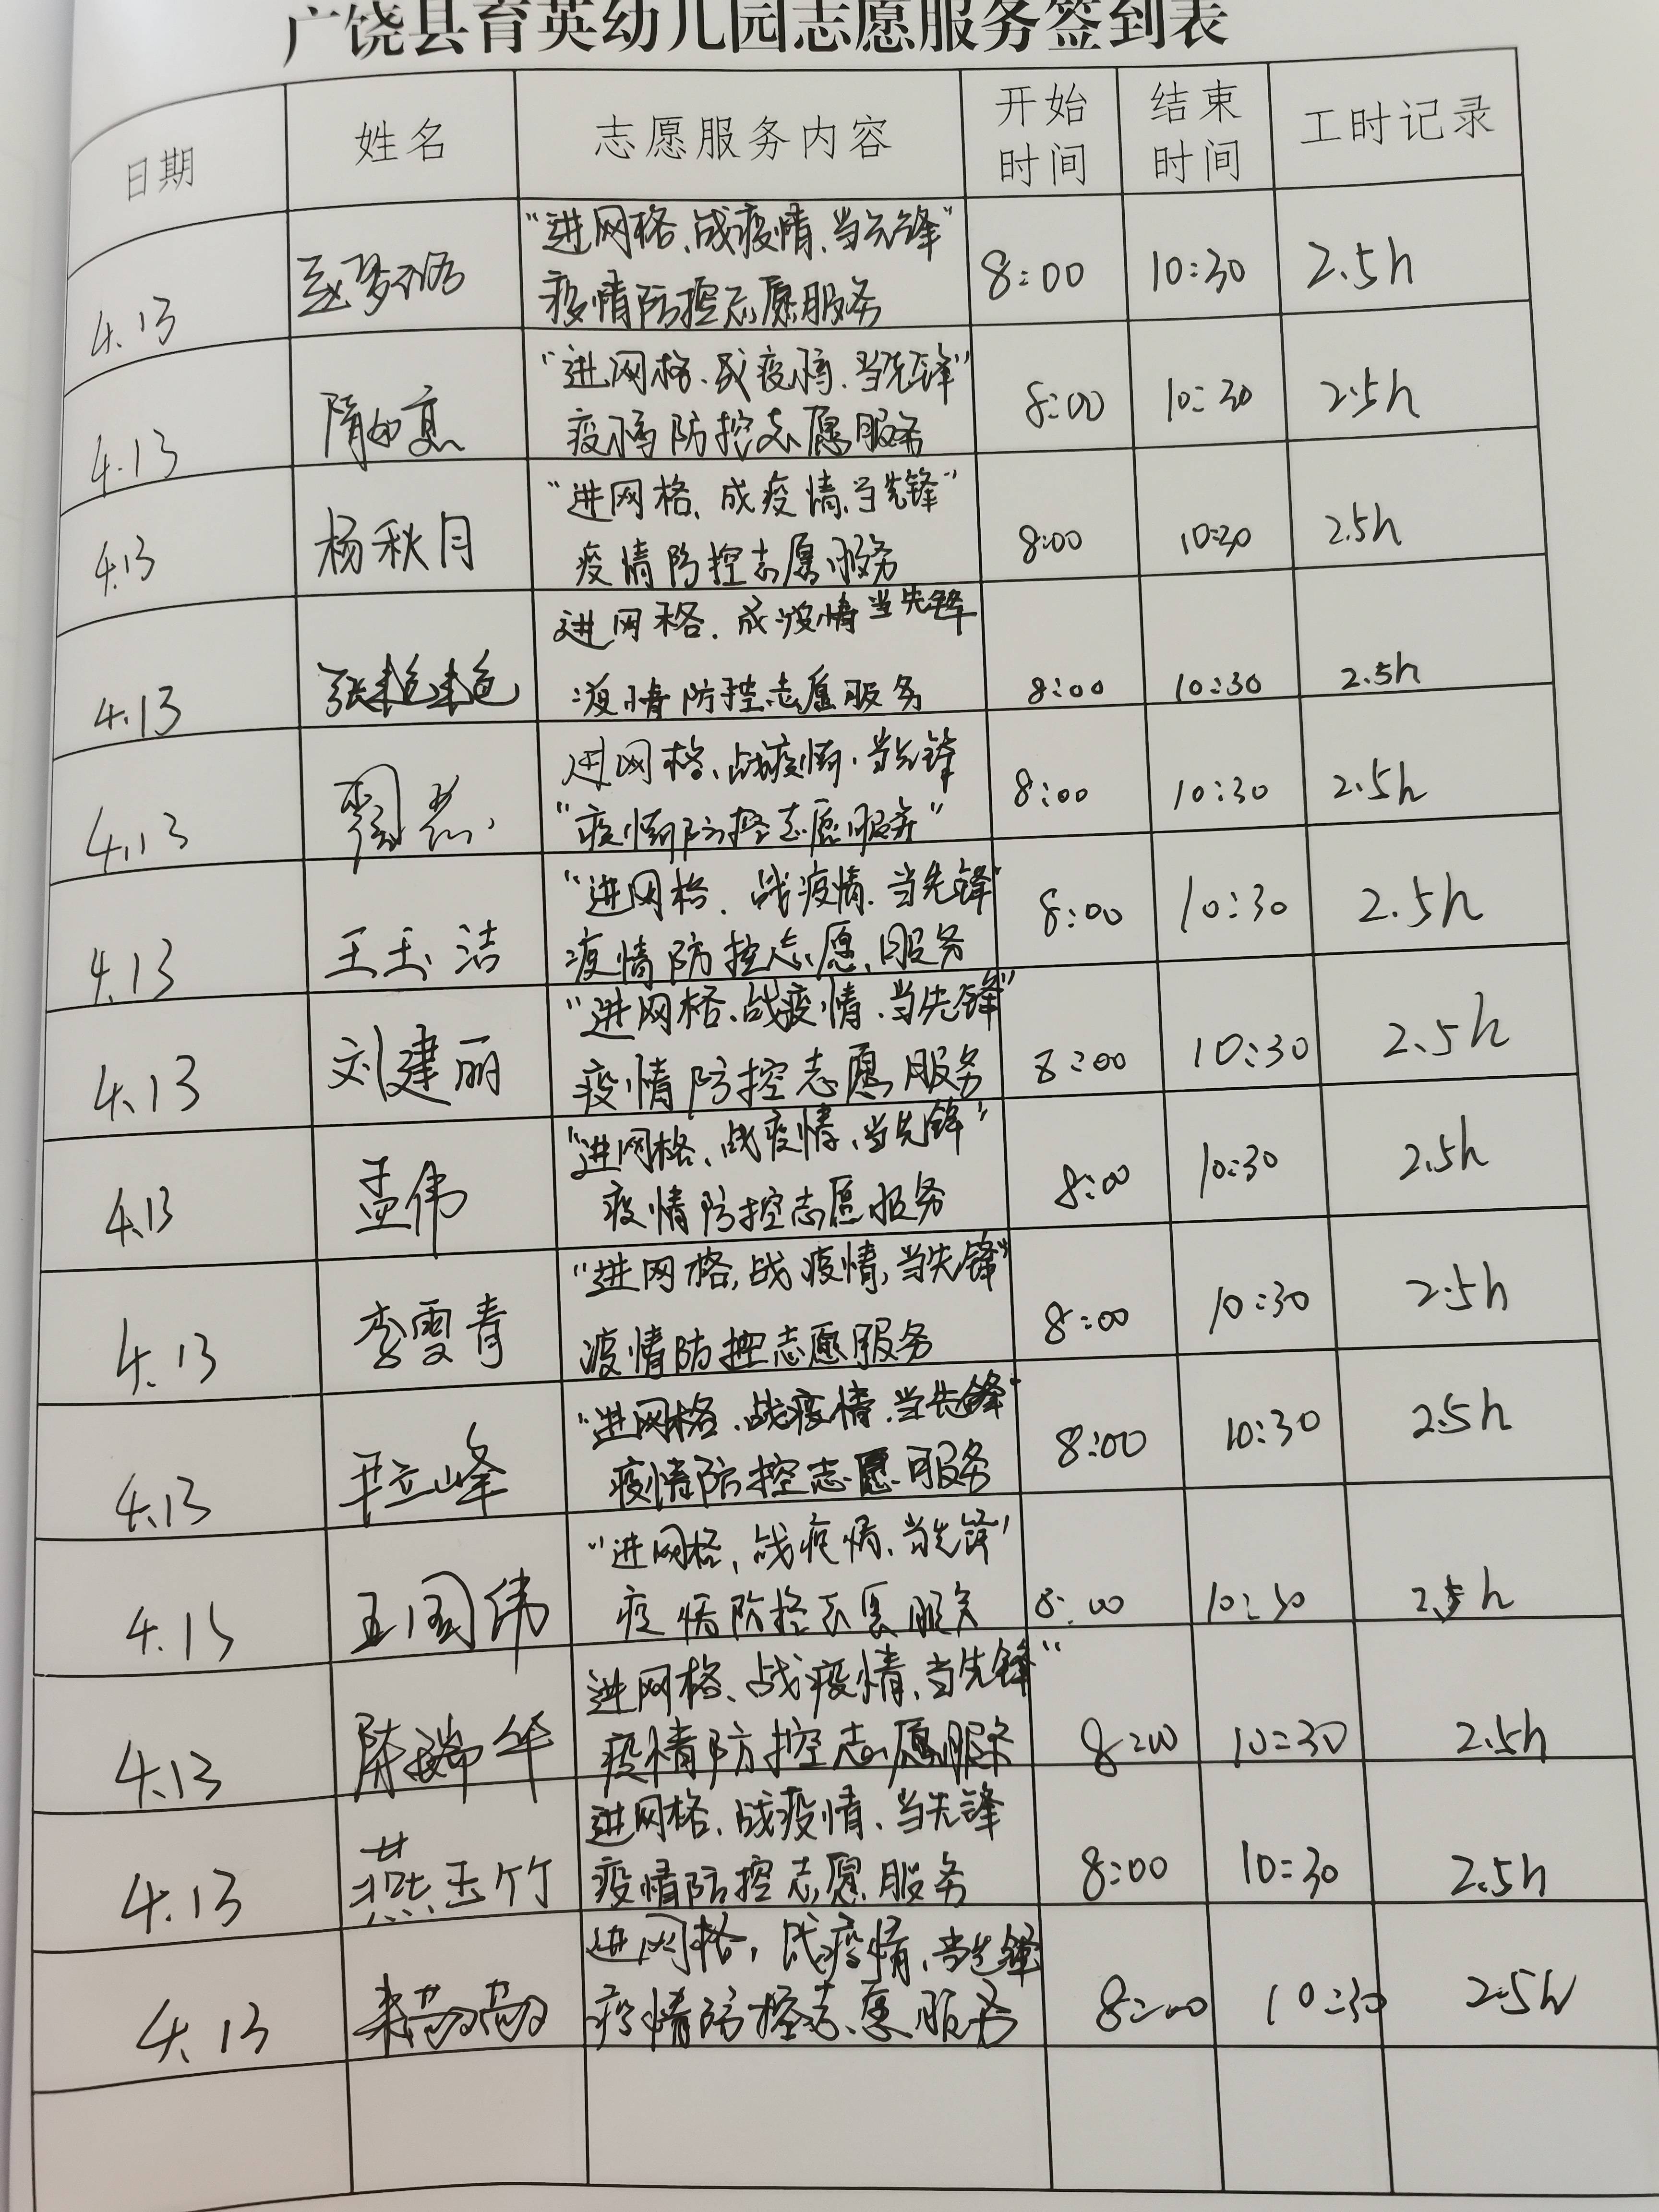 广饶县育英幼儿园志愿服务签到表
日期 姓名 志愿服务内容 开始时间 结束时间 工时记录
4.13 "进网格、战疫情、当先锋" 8:00 10:30 2.5h
疫情防控志愿服务
4.13 "进网格、战疫情、当先锋" 8:00 10:30 2.5h
疫情防控志愿服务
4.13 杨秋月 "进网格、战疫情、当先锋" 8:00 10:30 2.5h
疫情防控志愿服务
4.13 张艳艳 进网格、战疫情当先锋 8:00 10:30 2.5h
疫情防控志愿服务
4.13 进网格、战疫情、当先锋 8:00 10:30 2.5h
"疫情防控志愿服务"
4.13 王玉洁 "进网格、战疫情、当先锋" 8:00 10:30 2.5h
疫情防控志愿服务
4.13 刘建丽 "进网格、战疫情、当先锋" 8:00 10:30 2.5h
疫情防控志愿服务
4.13 孟伟 "进网格、战疫情、当先锋" 8:00 10:30 2.5h
疫情防控志愿服务
4.13 李雪青 "进网格,战疫情,当先锋" 8:00 10:30 2.5h
疫情防控志愿服务
4.13 "进网格、战疫情、当先锋" 8:00 10:30 2.5h
疫情防控志愿服务
4.13 王国伟 "进网格,战疫情、当先锋" 8:00 10:30 2.5h
疫情防控志愿服务
4.13 陈瑞华 进网格、战疫情、当先锋" 8:00 10:30 2.5h
疫情防控志愿服务
4.13 燕玉竹 进网格、战疫情、当先锋 8:00 10:30 2.5h
疫情防控志愿服务
4.13 进网格,战疫情、当先锋 8:00 10:30 2.5h
疫情防控志愿服务